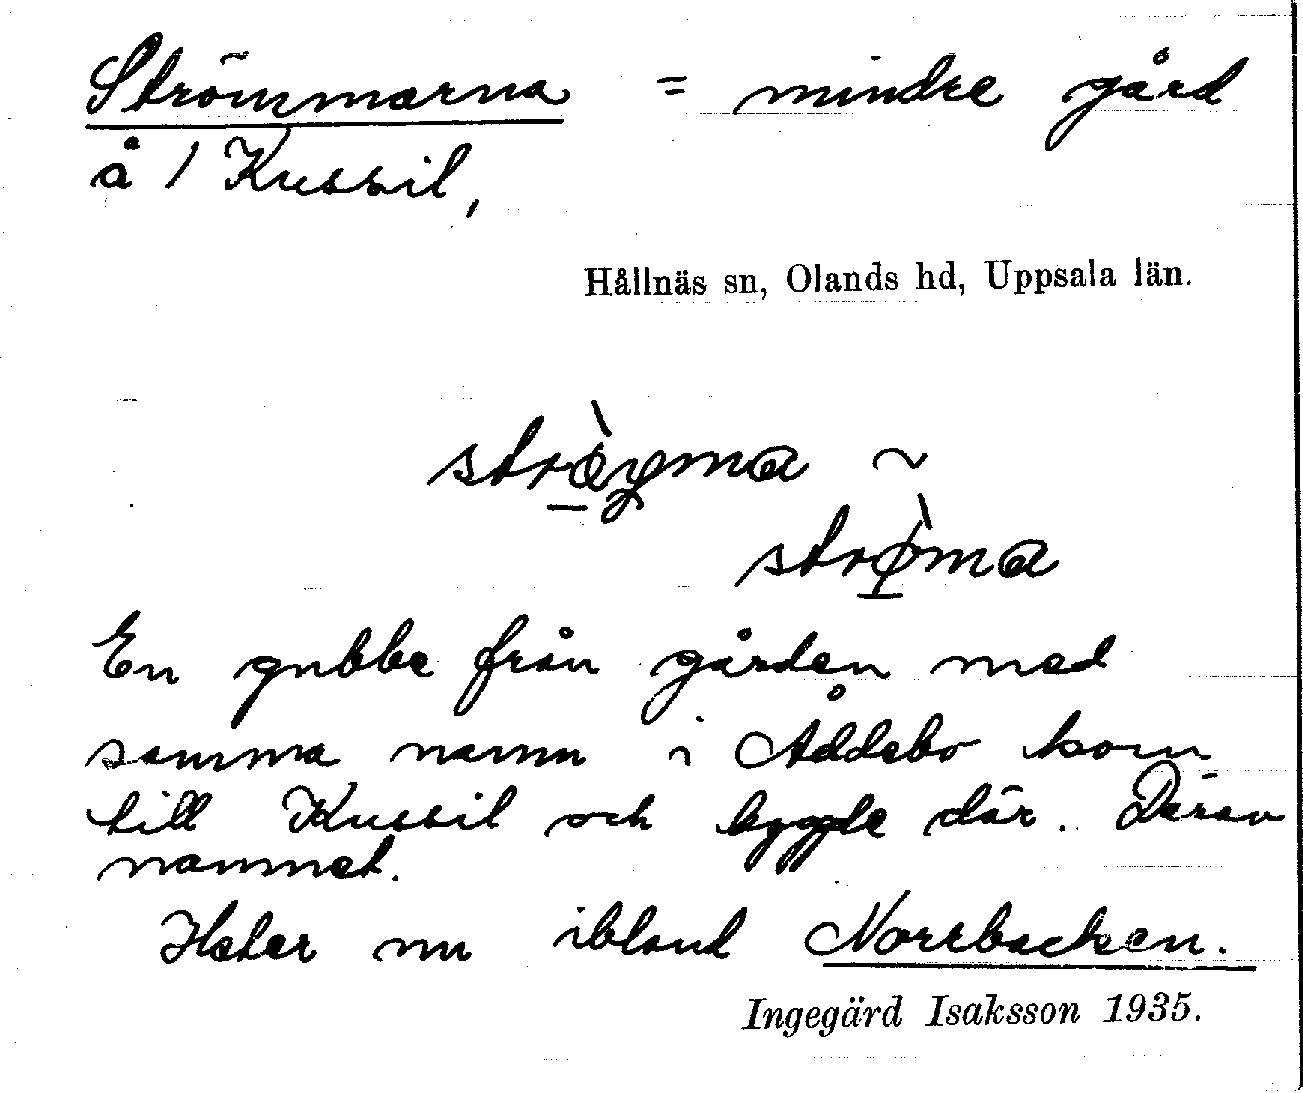 Strömmarna = mindre gård
å 1 Kussil,
Hållnäs sn, Olands hd, Uppsala län.
~
strø̀ma
En gubbe från gården med
samma namn i Åddebo kom
till Kussil och byggde där. Därav
namnet.
Heter nu ibland Norrbacken.
Ingegärd Isaksson 1935.